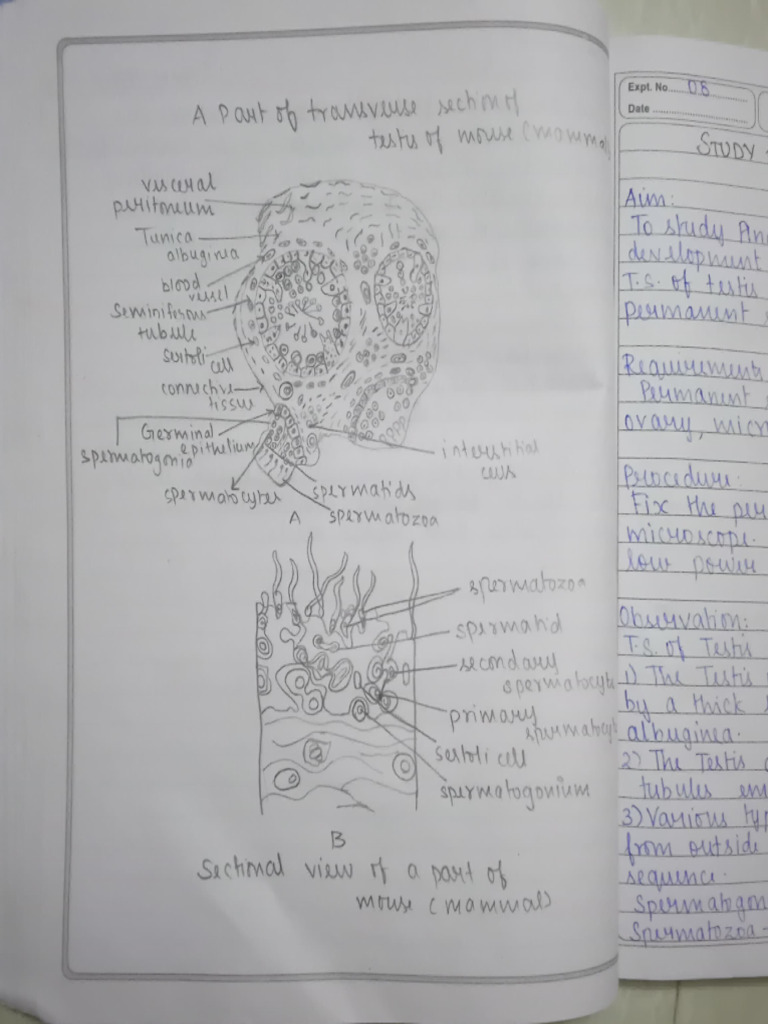 A Part of transverse section of
testis of mouse (mamma
visceral
peritoneum
Tunica
albuginia
blood
vessel
Seminiferous
tubule
sertoli
cell
connective
tissue
Germinal
epithelium
spermatogonia
spermatocytes
spermatids
spermatozoa
interstitial
cells
A
spermatozoa
spermatid
secondary
spermatocyte
primary
spermatocyt
sertoli cell
spermatogonium
B
Sectional view of a part of
mouse (mammal)
Expt. No. 08
Date
STUDY
Aim:
To study
development
T.S. of testis
permanent
Requirements
Permanent
ovary, micr
Procedure:
Fix the per
microscope.
low power
Observation:
T.S. of Testis
1) The Testis
by a thick
albuginea.
2) The Testis
tubules em
3) Various typ
from outside
sequence.
Spermatogon
Spermatozoa-